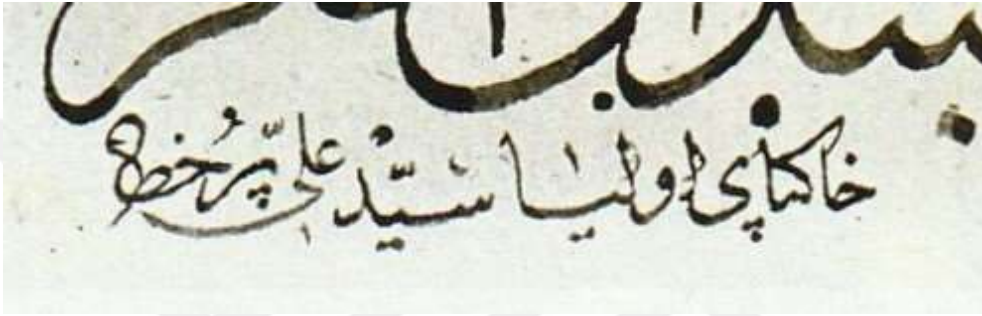 خاکپای اولیا سیّد علی پُر خطا